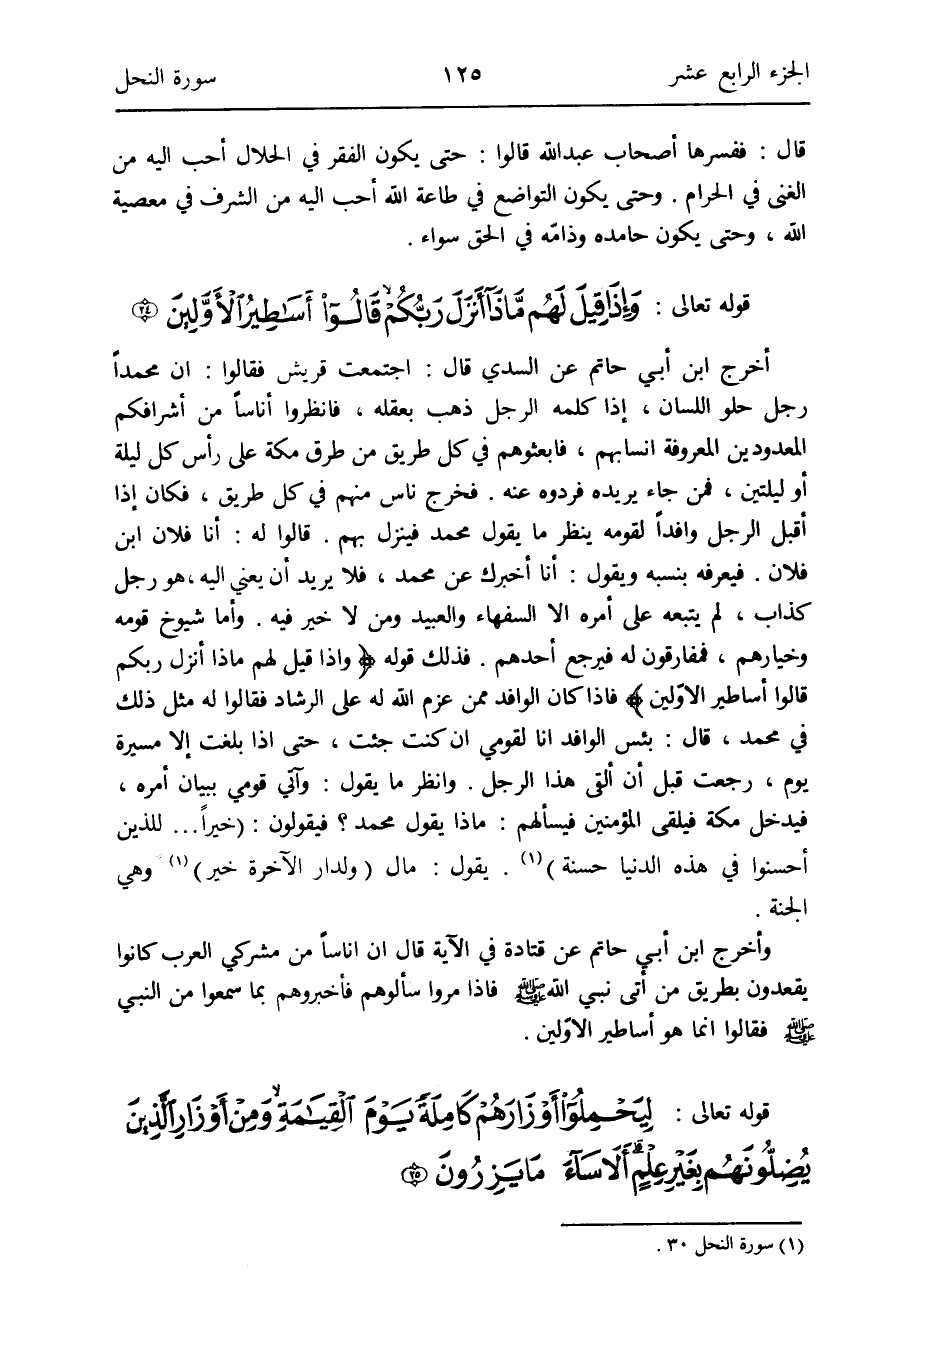 الجزء الرابع عشر ١٢٥ سورة النحل
قال : ففسرها أصحاب عبدالله قالوا : حتى يكون الفقر في الحلال أحب اليه من
الغنى في الحرام . وحتى يكون التواضع في طاعة الله أحب اليه من الشرف في معصية
الله ، وحتى يكون حامده وذامّه في الحق سواء .
قوله تعالى : وَإِذَا قِيلَ لَهُم مَّاذَآ أَنزَلَ رَبُّكُمْ ۙ قَالُوٓا۟ أَسَـٰطِيرُ ٱلْأَوَّلِينَ ﴿٢٤﴾
أخرج ابن أبي حاتم عن السدي قال : اجتمعت قريش فقالوا : ان محمداً
رجل حلو اللسان ، إذا كلمه الرجل ذهب بعقله ، فانظروا أناساً من أشرافكم
المعدودين المعروفة انسابهم ، فابعثوهم في كل طريق من طرق مكة على رأس كل ليلة
أو ليلتين ، فمن جاء يريده فردوه عنه . فخرج ناس منهم في كل طريق ، فكان إذا
أقبل الرجل وافداً لقومه ينظر ما يقول محمد فينزل بهم . قالوا له : أنا فلان ابن
فلان . فيعرفه بنسبه ويقول : أنا أخبرك عن محمد ، فلا يريد أن يعني اليه ، هو رجل
كذاب ، لم يتبعه على أمره الا السفهاء والعبيد ومن لا خير فيه . وأما شيوخ قومه
وخيارهم ، فمفارقون له فيرجع أحدهم . فذلك قوله ﴿ واذا قيل لهم ماذا أنزل ربكم
قالوا أساطير الاوّلين ﴾ فاذا كان الوافد ممن عزم الله له على الرشاد فقالوا له مثل ذلك
في محمد ، قال : بئس الوافد انا لقومي ان كنت جئت ، حتى اذا بلغت إلا مسيرة
يوم ، رجعت قبل أن ألقى هذا الرجل . وانظر ما يقول : وآتي قومي ببيان أمره ،
فيدخل مكة فيلقى المؤمنين فيسألهم : ماذا يقول محمد ؟ فيقولون : (خيراً... للذين
أحسنوا في هذه الدنيا حسنة )(١) . يقول : مال ( ولدار الآخرة خير )(١) وهي
الجنة .
وأخرج ابن أبي حاتم عن قتادة في الآية قال ان اناساً من مشركي العرب كانوا
يقعدون بطريق من أتى نبي الله ﷺ فاذا مروا سألوهم فأخبروهم بما سمعوا من النبي
ﷺ فقالوا انما هو أساطير الاوّلين .
قوله تعالى : لِيَحْمِلُوٓا۟ أَوْزَارَهُمْ كَامِلَةً يَوْمَ ٱلْقِيَـٰمَةِ ۙ وَمِنْ أَوْزَارِ ٱلَّذِينَ
يُضِلُّونَهُم بِغَيْرِ عِلْمٍ ۗ أَلَا سَآءَ مَا يَزِرُونَ ﴿٢٥﴾
(١) سورة النحل ٣٠ .